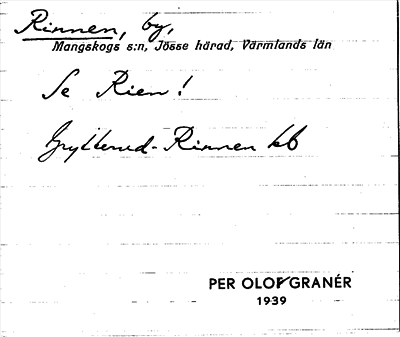 Rinnen, by,
Mangskogs s:n, Jösse härad, Värmlands län
Se Rien!
Grytterud-Rinnen kb
PER OLOF GRANÉR
1939